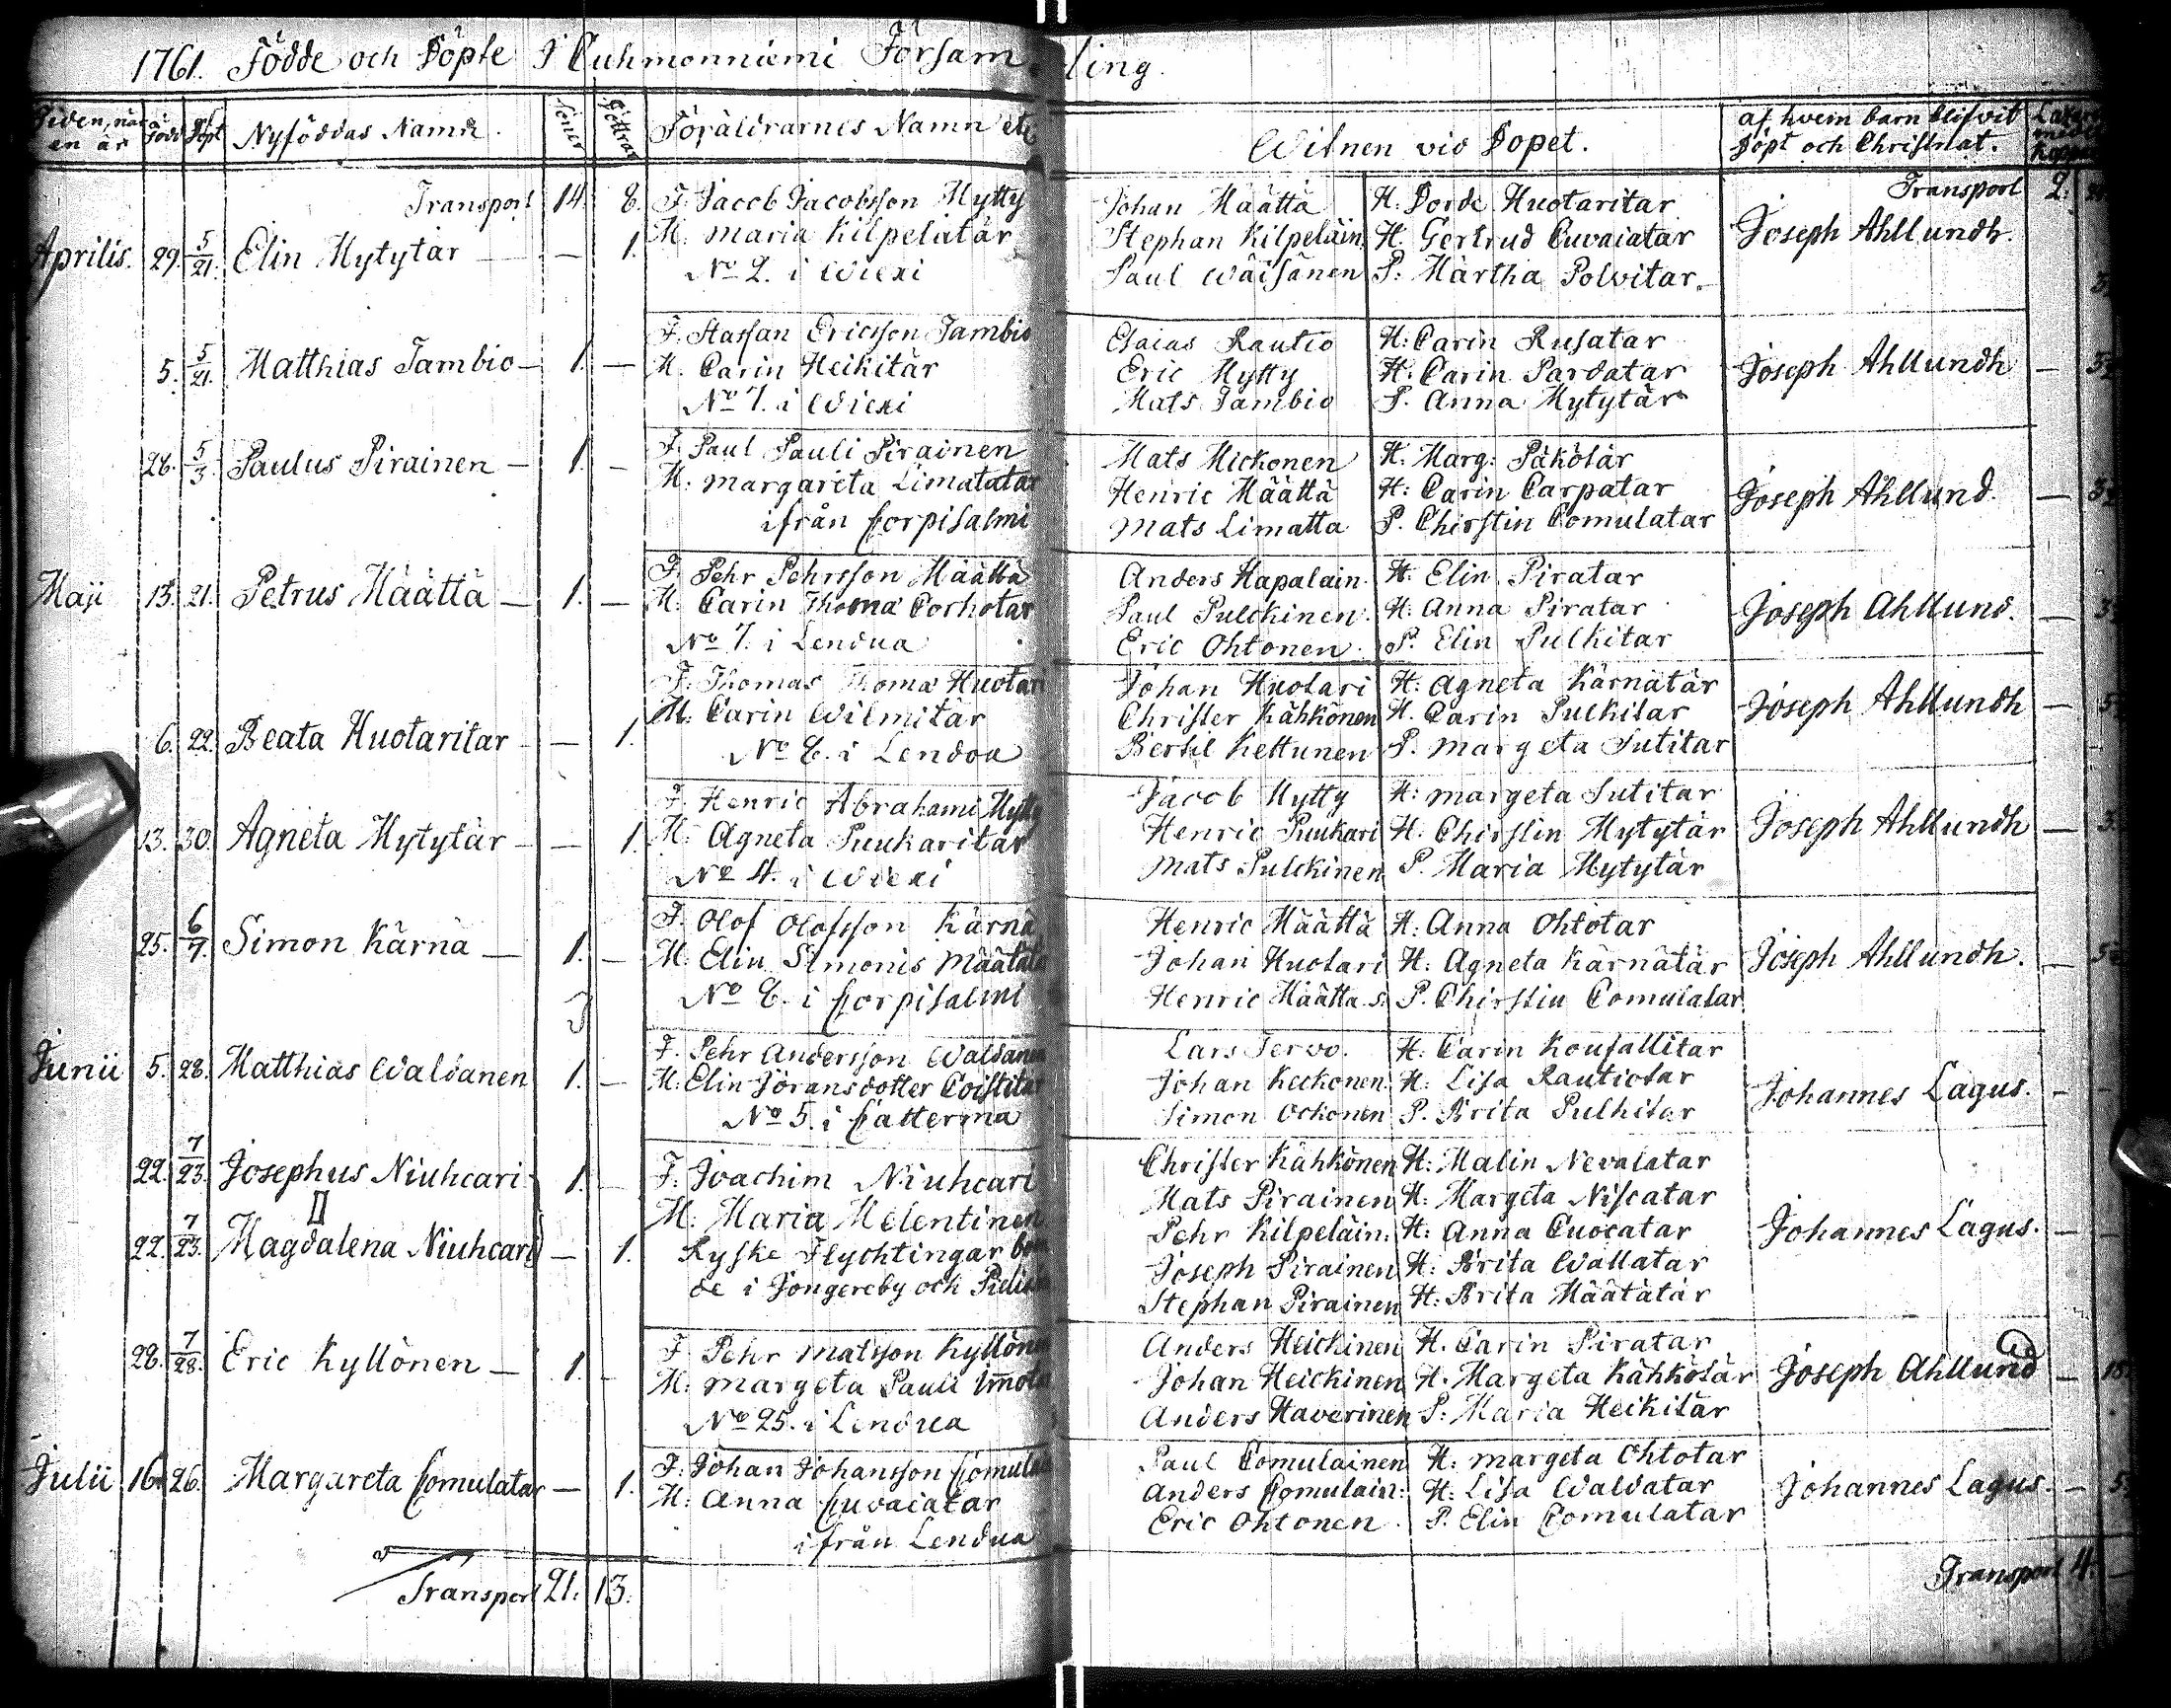 1761. Födde och Döpte I Cuhmonniemi Församling.
Tiden, när en är Född Döpt Nyföddas Namn. Söner Döttrar Föräldrarnes Namn etc
Witnen vid Dopet. af hvem barn blifvit Döpt och Christnat.
Transport 14. 8. F. Jacob Jacobsson Mytty
Aprilis. 29. 5/21. Elin Mytytär — — 1. M: Maria Kilpelatär
No 2. i Wiexi
Johan Määttä H. Dorde Huotaritar Transport 2.
Stephan Kilpeläin. H. Gertrud Cuvaiatar Joseph Ahllundh.
Paul Wäisänen P: Märtha Polvitar.
F. Staffan Ericsson Tambio
5. 5/21. Matthias Tambio — 1. — M. Carin Heikitär
No 7. i Wiexi
Esaias Rautio H: Carin Rusatar
Eric Mytty H: Carin Pardatar Joseph Ahllundh —
Mats Tambio P. Anna Mytytär
F. Paul Pauli Pirainen
28. 5/3. Paulus Pirainen — 1. — M: Margareta Limatatar
ifrån Corpisalmi
Mats Mickonen H. Marg: Päkötär
Henric Määttä H: Carin Carpatar Joseph Ahllund. —
Mats Limatta P. Chirstin Comulatar
F. Pehr Pehrsson Määttä
Maji 13. 21. Petrus Määttä — 1. — M. Carin Thomæ Corhotar
No 7. i Lendua
Anders Hapalain. H. Elin Piratar
Paul Pulckinen. H: Anna Piratar Joseph Ahllund. —
Eric Ohtonen. P. Elin Pulkitar
F. Thomas Thomæ Huotari
6. 22. Beata Huotaritar — — 1. M. Carin Wilmitär
No 8. i Lendoa
Johan Huotari H: Agneta Kärnätär
Christer Kähkönen H. Carin Pulkitar Joseph Ahllundh —
Bertil Kettunen P. Margeta Sutitar
F. Henric Abrahami Mytty
13. 30. Agneta Mytytär — — 1. M: Agneta Puukaritar
No 4. i Wiexi
Jacob Mytty H: Margeta Sutitar
Henric Puukari H: Chirstin Mytytär Joseph Ahllundh —
Mats Pulckinen P. Maria Mytytär
F. Olof Olofsson Kärnä
25. 6/7. Simon Kärnä — 1. — M. Elin Simonis Määtätä
No 8. i Corpisalmi
Henric Määttä H: Anna Ohtotar
Johan Huotari H: Agneta Kärnätär Joseph Ahllundh. —
Henric Määtta s. P. Chirstin Comulatar
F. Pehr Andersson Waldanen
Junii 5. 28. Matthias Waldanen 1. — M: Elin Jöransdotter Coistitar
No 5. i Catterma
Lars Tervo. H: Carin Kousallitar
Johan Keckonen. H. Lisa Rautiotar Johannes Lagus. —
Simon Ockonen P. Brita Pulkitar
22. 7/23. Josephus Niuhcari 1. — F. Joachim Niuhcari
II M: Maria Melentinen
22. 7/23. Magdalena Niuhcari — 1. Ryske Flychtingar boen
de i Jongereby och Pielis
Christer Kähkönen H: Malin Nevalatar
Mats Pirainen H: Margeta Niscatar
Pehr Kilpeläin. H: Anna Cuocatar Johannes Lagus. —
Joseph Pirainen H: Brita Wallatar
Stephan Pirainen H: Brita Määtätär
F. Pehr Matsson Kyllönen
28. 7/28. Eric Kyllönen — 1. — M. Margeta Pauli Imota
No 25. i Lendua
Anders Heickinen H. Carin Piratar
Johan Heickinen H. Margeta Kähkötär Joseph Ahllund —
Anders Haverinen P: Maria Heikitär
F: Johan Johansson Comula
Julii 16. 26. Margareta Comulatar — 1. M: Anna Cuvaiatar
ifrån Lendua
Paul Comulainen H: Margeta Ohtotar
Anders Comulain: H: Lisa Waldatar Johannes Lagus. —
Eric Ohtonen. P. Elin Comulatar
Transport 21. 13.
Transport 4.